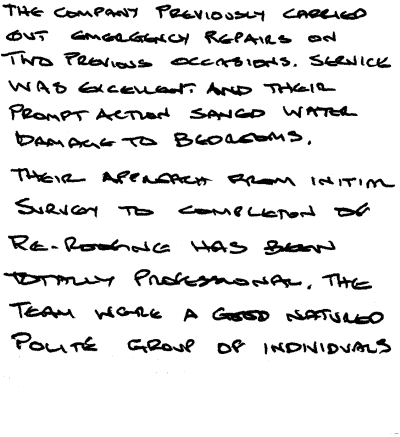 THE COMPANY PREVIOUSLY CARRIED
OUT EMERGENCY REPAIRS ON
TWO PREVIOUS OCCASIONS. SERVICE
WAS EXCELLENT. AND THEIR
PROMPT ACTION SAVED WATER
DAMAGE TO BEDROOMS.
THEIR APPROACH FROM INITIAL
SURVEY TO COMPLETION OF
RE-ROOFING HAS BEEN
TOTALLY PROFESSIONAL. THE
TEAM WERE A GOOD NATURED
POLITE GROUP OF INDIVIDUALS